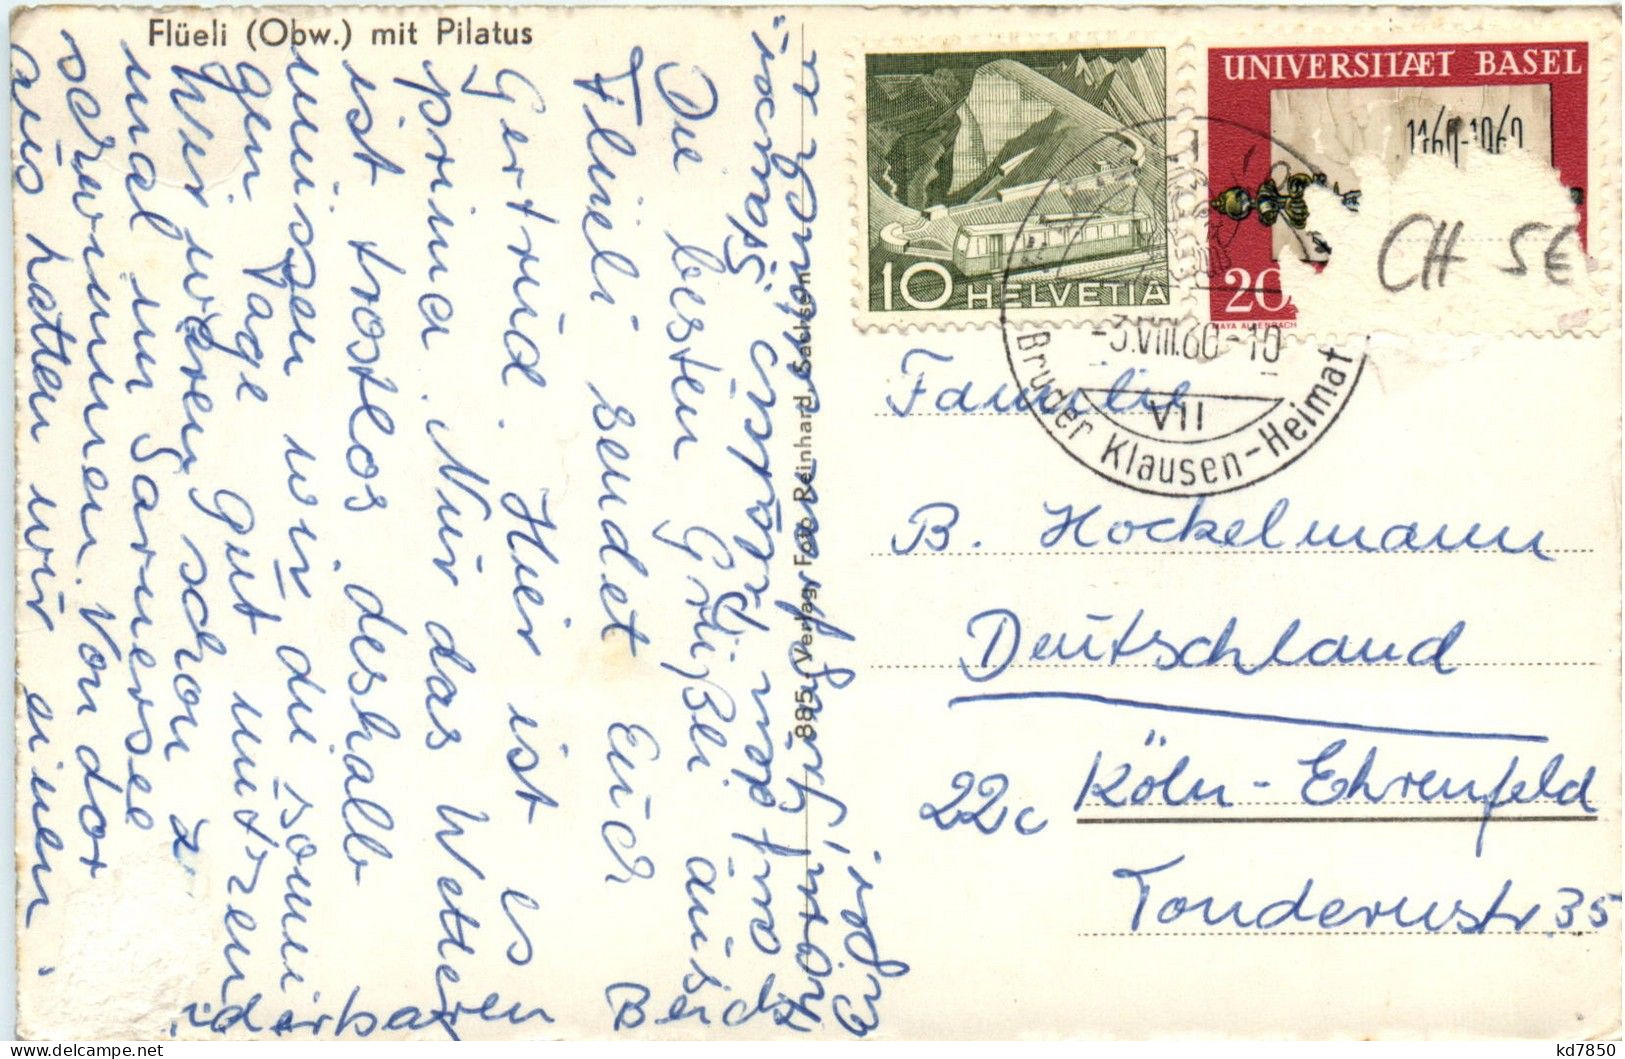 Flüeli (Obw.) mit Pilatus
Die besten Grüßli aus
Flüeli sendet Euch
Gertrud. Hier ist es
prima. Nur das Wetter
ist trostlos, deshalb
müssen wir die sonni
gen Tage gut nutzen
Wir waren schon 2
mal im Sarnersee
schwimmen. Von dor
aus hatten wir einen
derbaren
885 - Verlag Foto Reinhard, Sachseln
UNIVERSITÆT BASEL
1460-1960
20
MAYA ALLENBACH
10 HELVETIA
-3.VIII.60-10
VII
Bruder Klausen-Heimat
CH 5€
Familie
B. Hockelmann
Deutschland
22c Köln-Ehrenfeld
Tondernstr. 35
kd7850